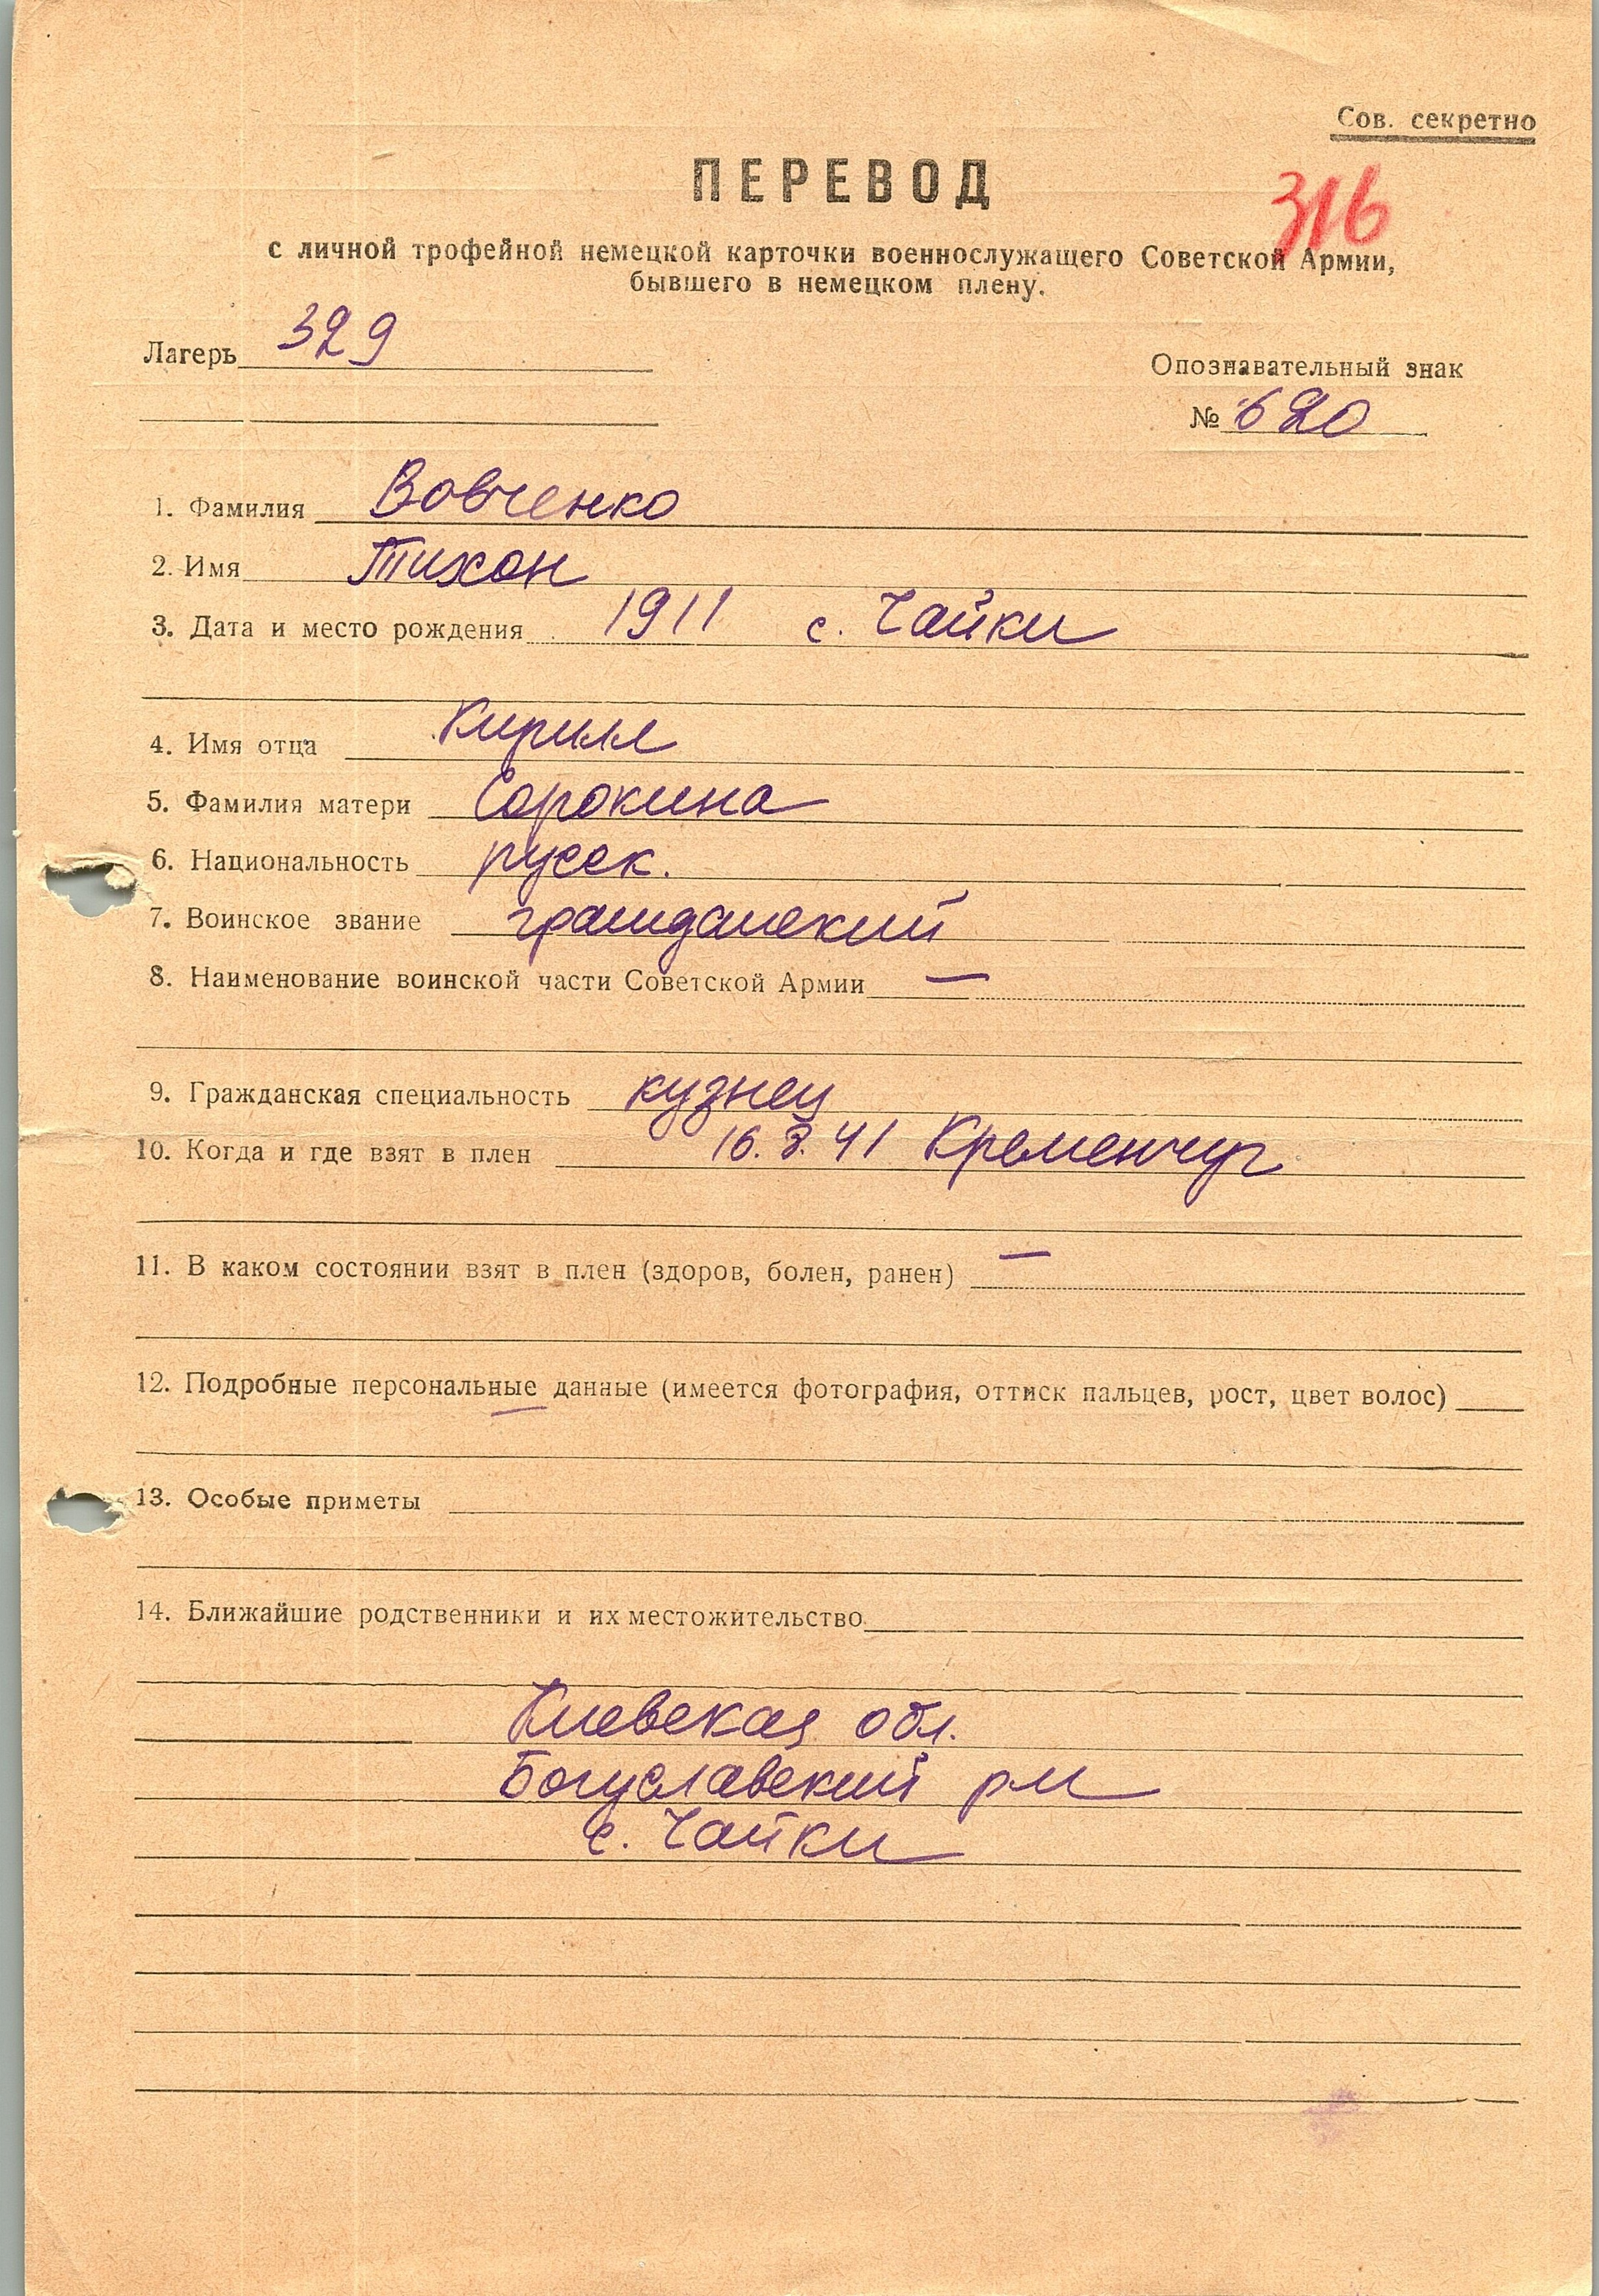 Сов. секретно
ПЕРЕВОД
316
с личной трофейной немецкой карточки военнослужащего Советской Армии,
бывшего в немецком плену.
Лагерь 329
Опознавательный знак
№ 620
1. Фамилия Вовченко
2. Имя Тихон
3. Дата и место рождения 1911 с. Чайки
4. Имя отца Кирилл
5. Фамилия матери Сорокина
6. Национальность русск.
7. Воинское звание гражданский
8. Наименование воинской части Советской Армии —
9. Гражданская специальность кузнец
10. Когда и где взят в плен 16.8.41 Кременчуг
11. В каком состоянии взят в плен (здоров, болен, ранен) —
12. Подробные персональные данные (имеется фотография, оттиск пальцев, рост, цвет волос)
—
13. Особые приметы
14. Ближайшие родственники и их местожительство
Киевская обл.
Богуславский рн
с. Чайки